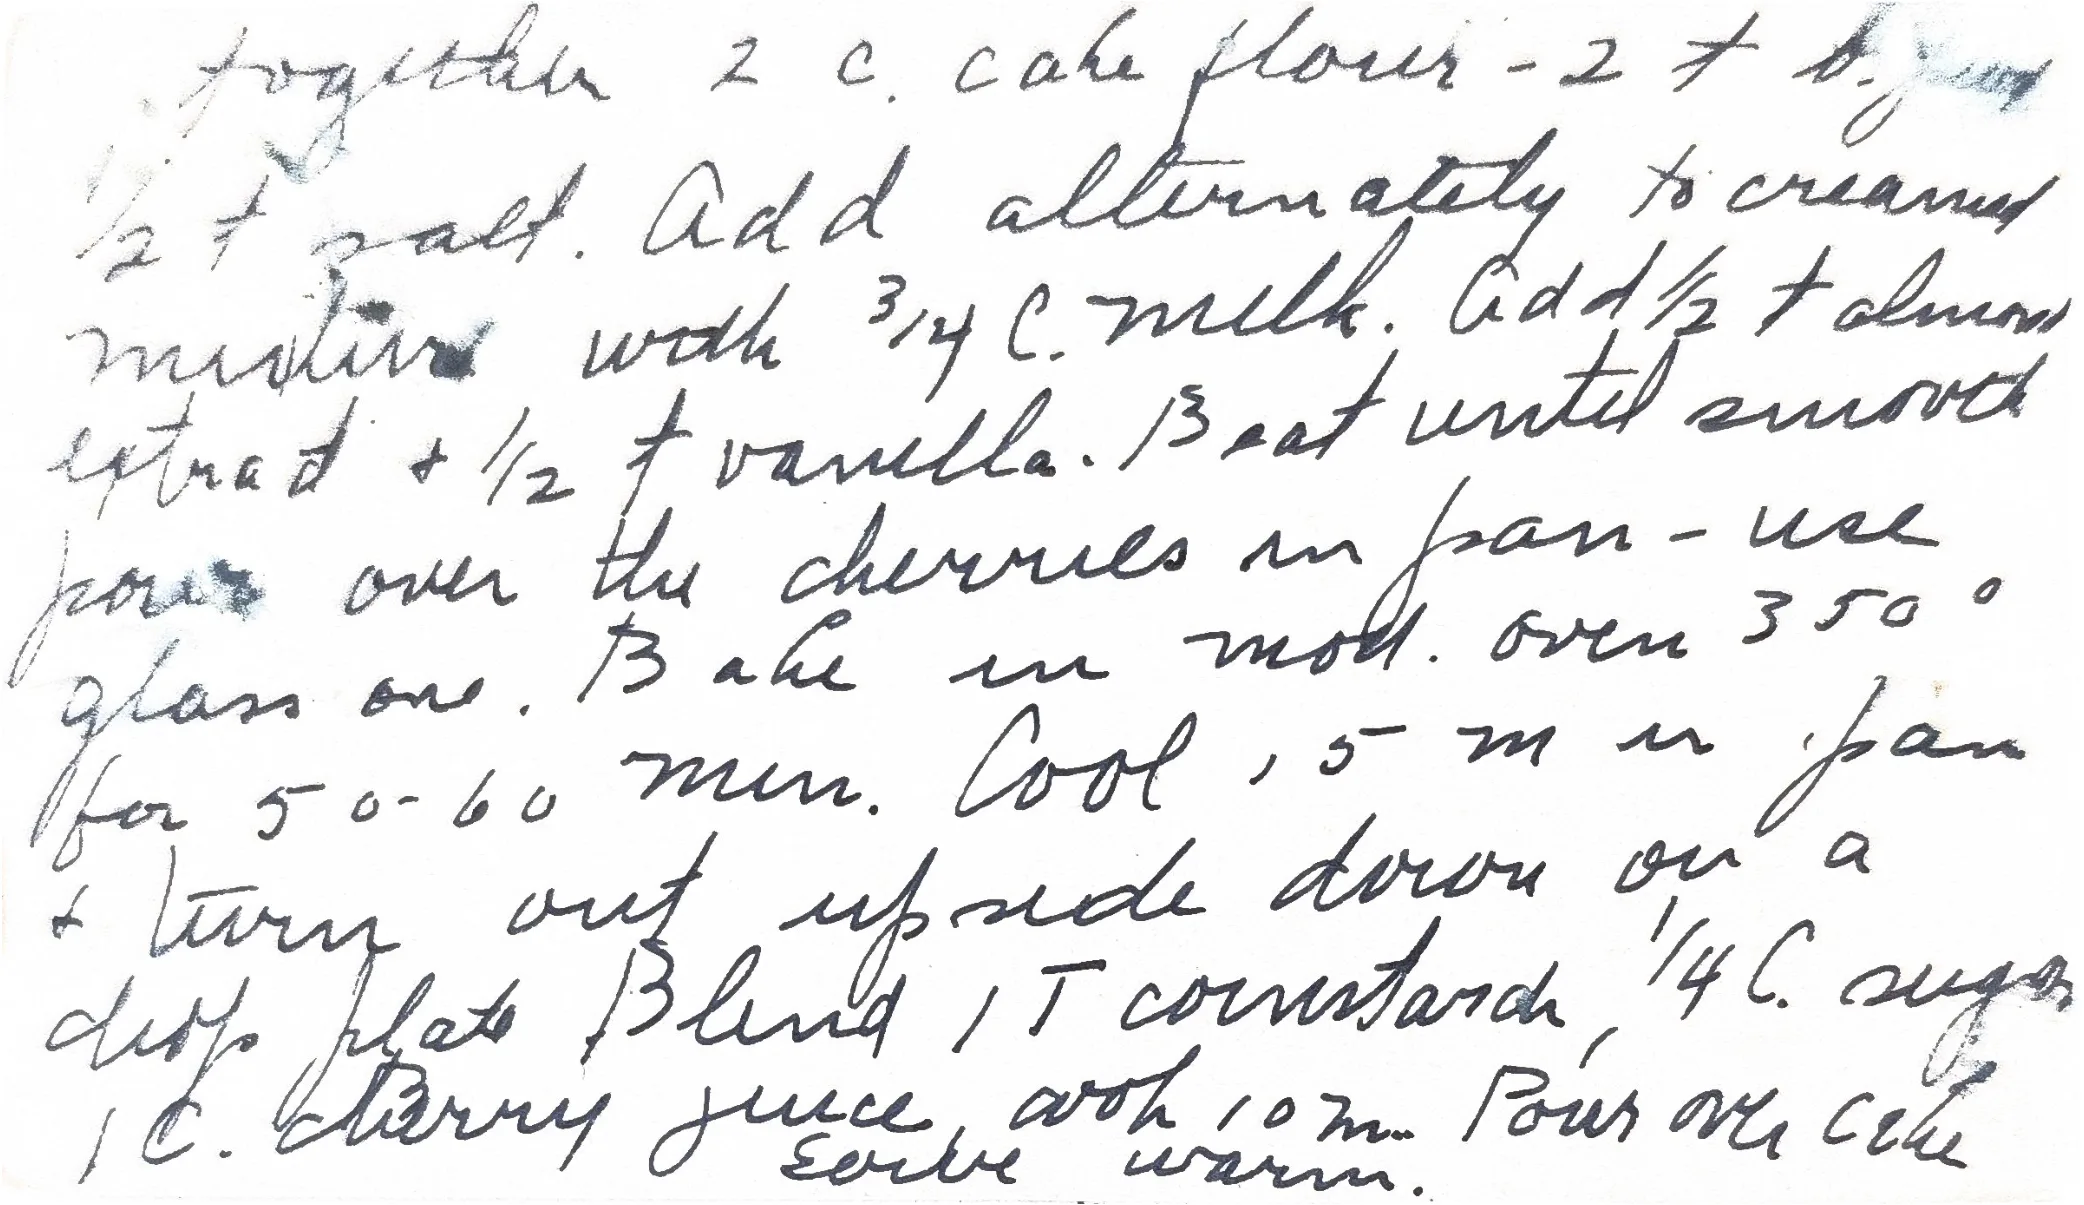 together 2 c. cake flour - 2 t b.
1/2 t salt. Add alternately to creamed
mixture with 3/4 C. milk. Add 1/2 t almond
extract + 1/2 t vanilla. Beat until smooth
pour over the cherries in pan - use
glass one. Bake in mod. oven 350°
for 50-60 min. Cool 15 m in pan
+ turn out upside down on a
drop plate Blend 1 T cornstarch, 1/4 C. sugar
1 C. cherry juice, cook 10 m. Pour over cake
Serve warm.